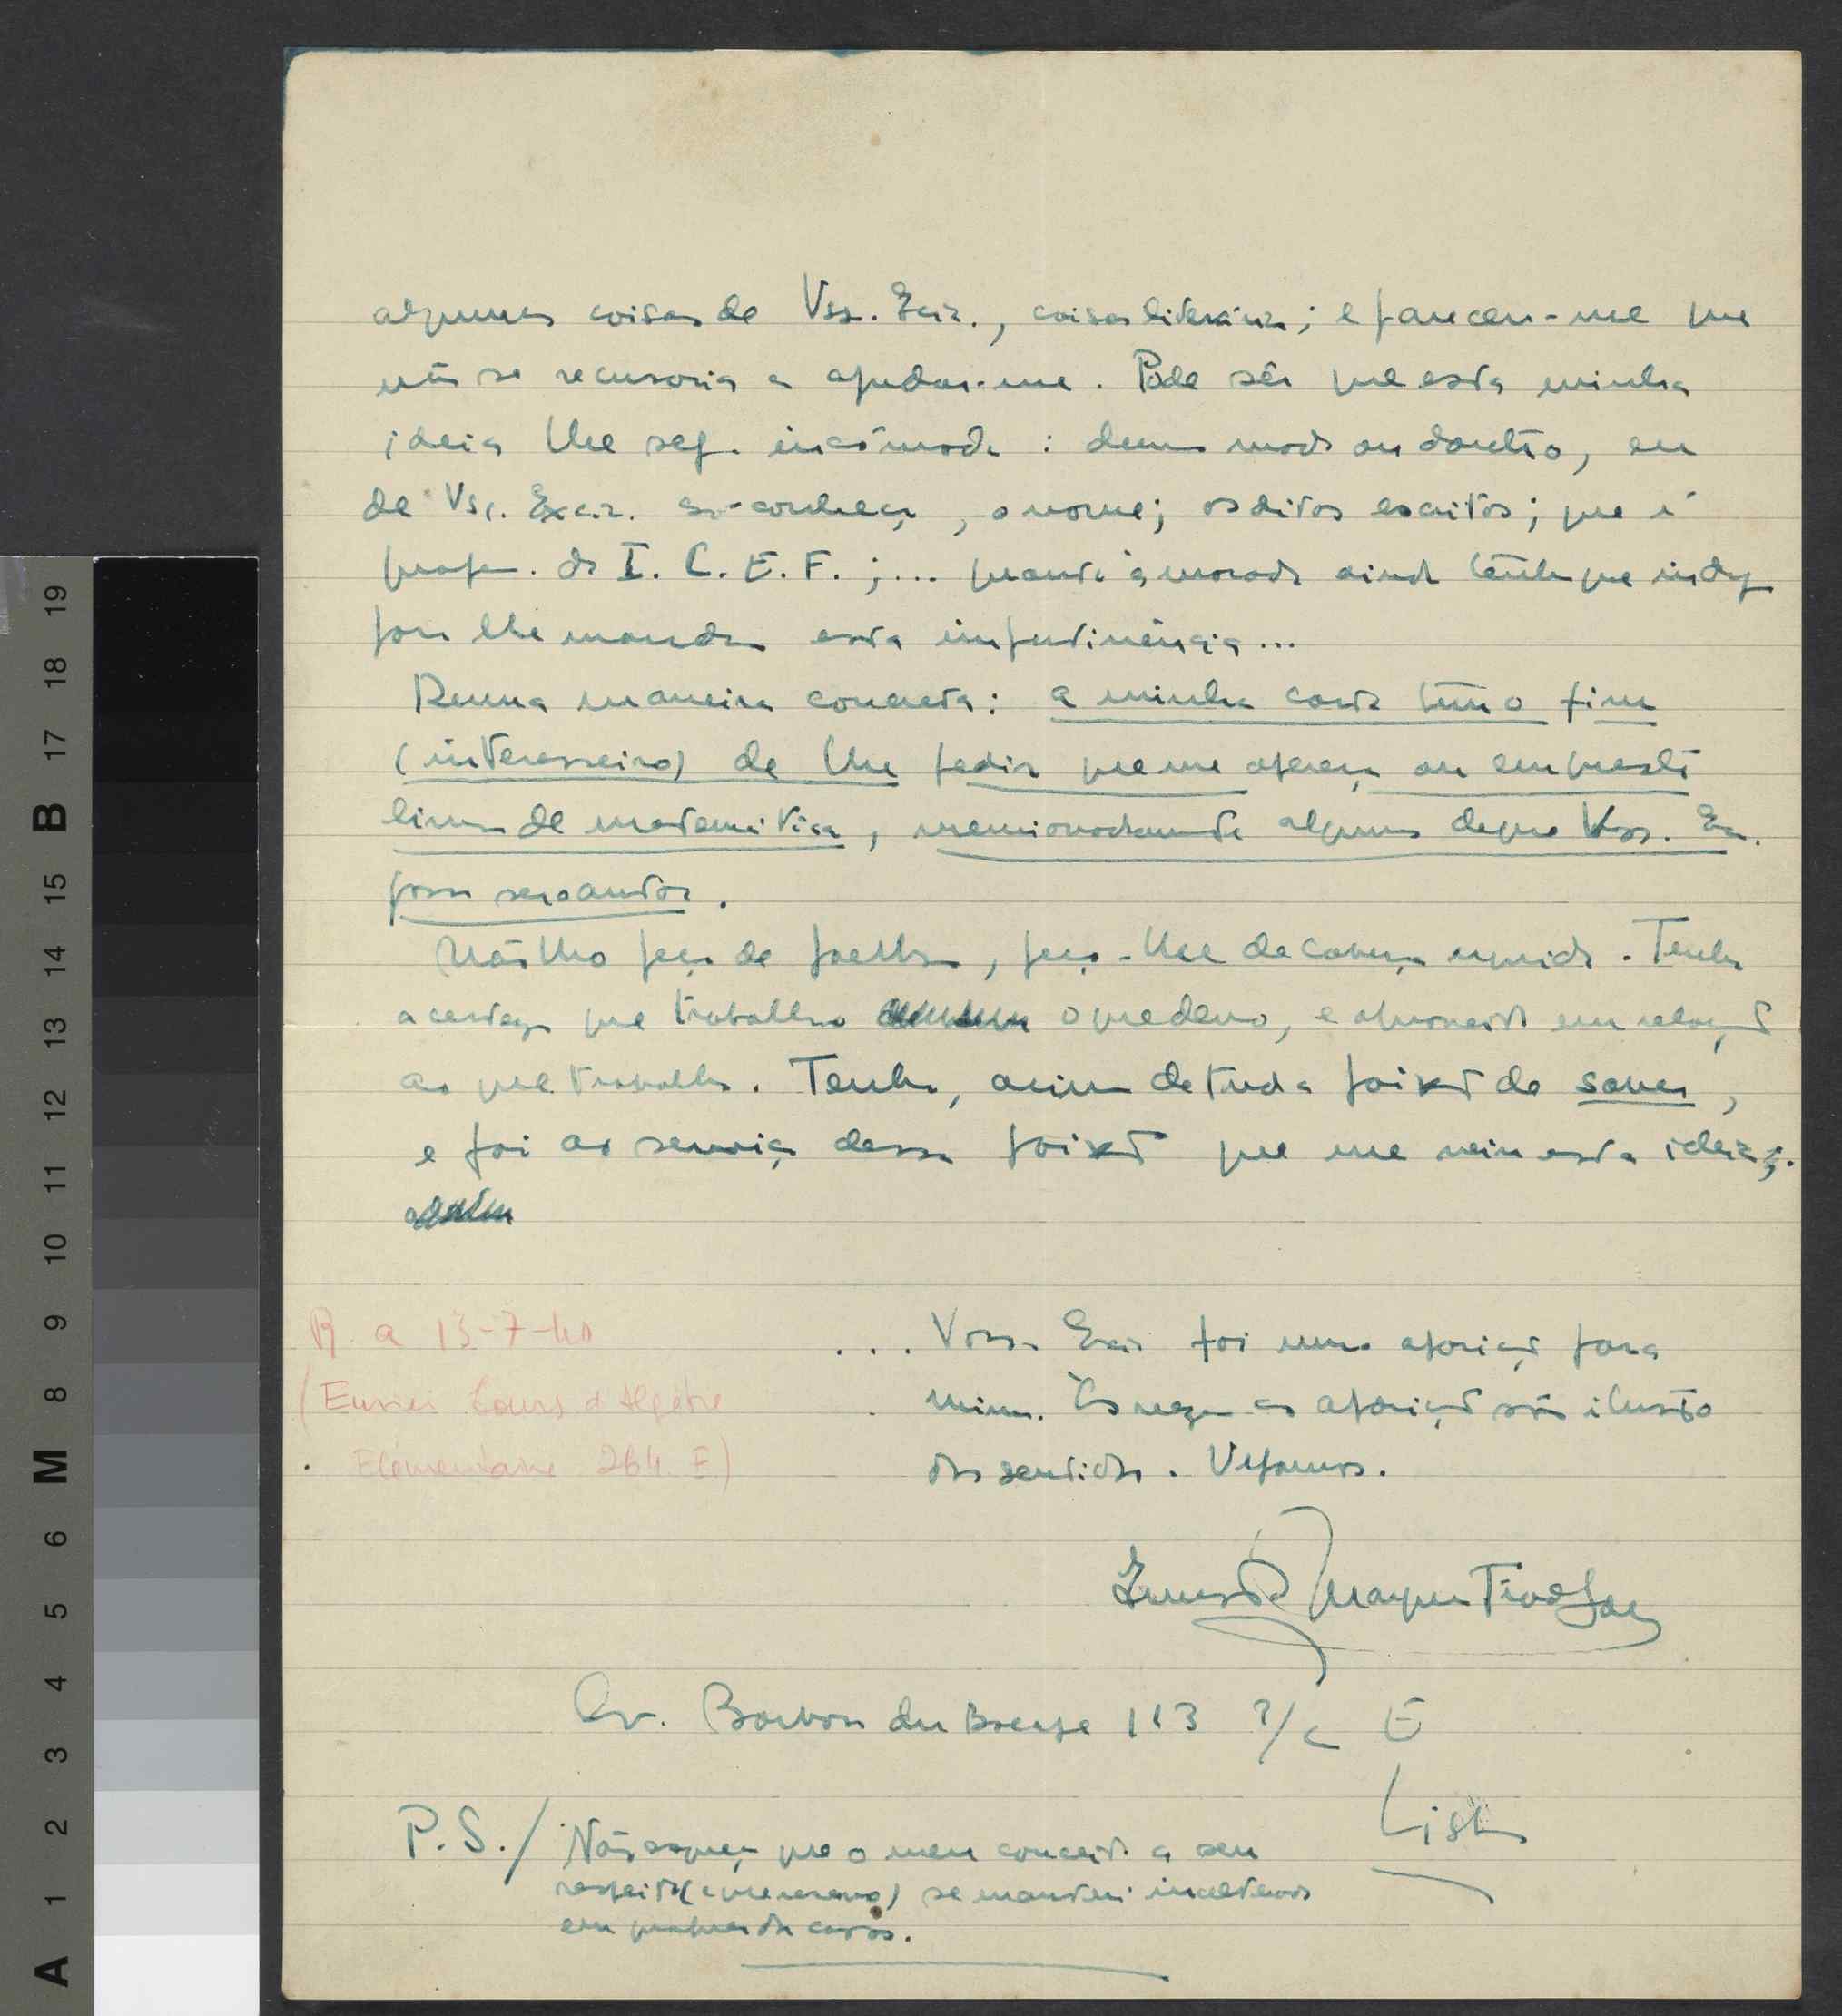 algumas coisas de Vss. Excia., coisas literárias; e pareceu-me que
não se recusaria a ajudar-me. Pode sêr que esta minha
ideia lhe seja incómoda: dum modo ou doutro, eu
de Vss. Excia. só conheça, o nome; os ditos escritos; que é
profes. do I. C. E. F.;... quanto à morada ainda tenho que indag
para lhe mandar esta impertinência...
Duma maneira concreta: a minha carta tem o fim
(interesseiro) de lhe pedir que me ofereça ou empreste
livros de matemática, alguns de que Vss. Ex.
possa ser o autor.
Não lho peço de joelhos, peço-lhe de cabeça erguida. Tenho
a certeza que trabalho o que devo, e aproveito em relação
ao que trabalho. Tenho, acima de tudo a paixão de saber,
e foi ao serviço dessa paixão que me veio esta ideia.
R. a 13-7-40
(Enviei Cours d'Algèbre
Élémentaire 264 E)
... Vossa Excia foi uma aparição para
mim. Às vezes as aparições são ilusão
dos sentidos. Vejamos.
Ernesto
Av. Barbosa du Bocage 113 r/c E
Lisboa
P.S./ Não esqueça que o meu conceito a seu
respeito se manterá inalterado
em qualquer dos casos.
19 18 17 B 15 14 13 12 11 10 9 8 M 6 5 4 3 2 1 A